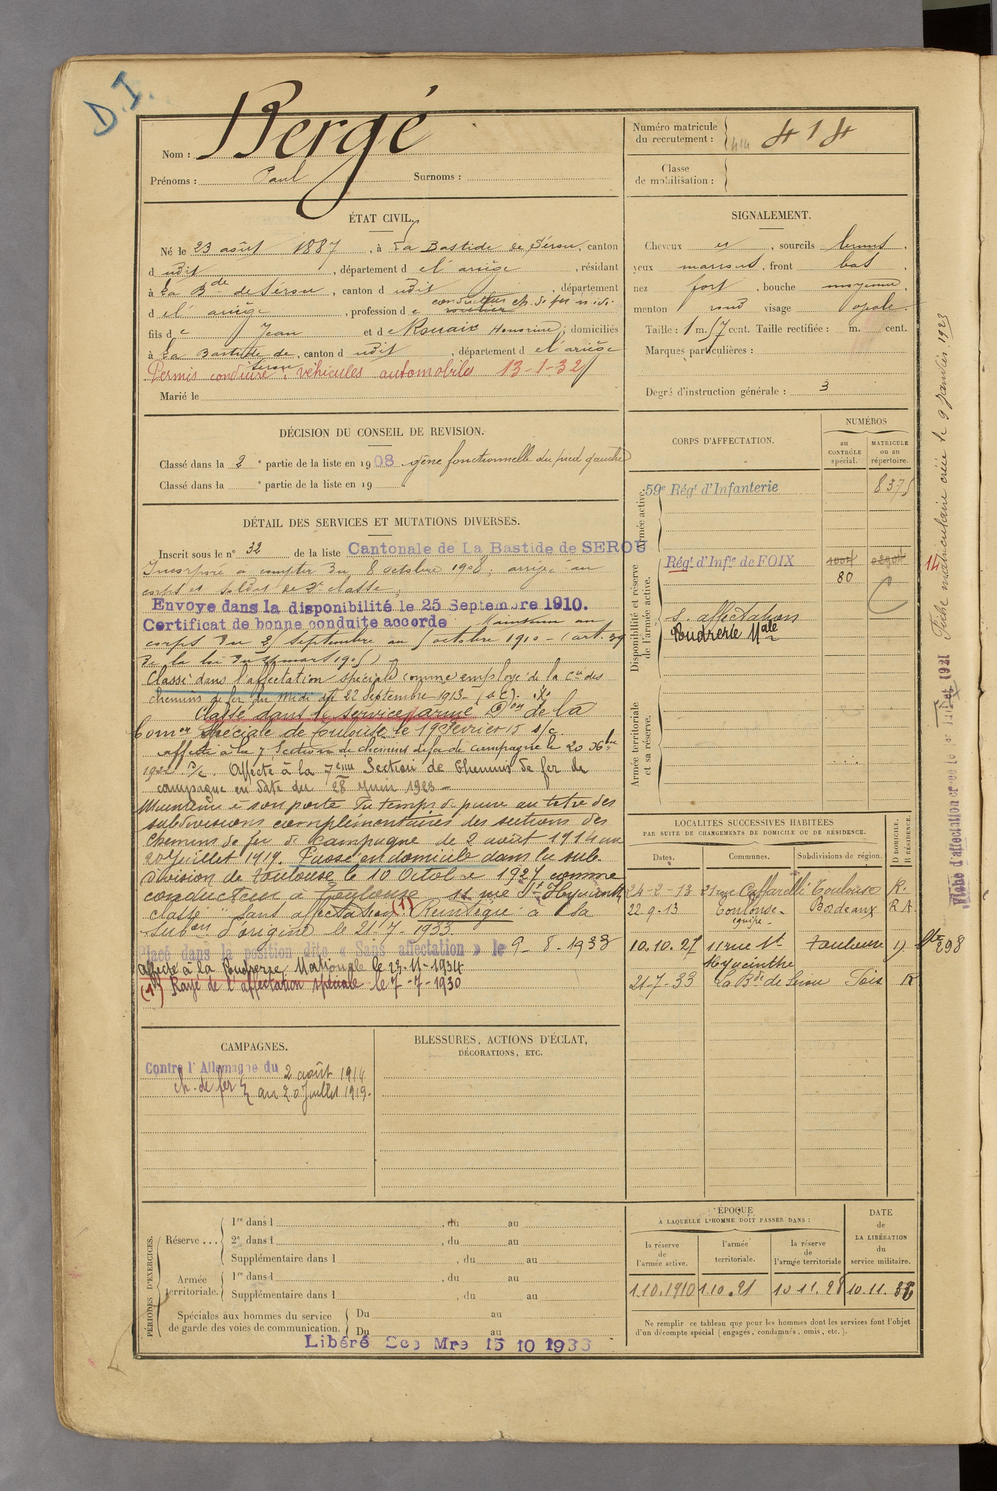 D.I.
Nom : Bergé
Prénoms : Paul Surnoms :
Numéro matricule du recrutement : 414
Classe de mobilisation :
ÉTAT CIVIL.
Né le 23 août 1887, à La Bastide de Sérou, canton
d udit, département d e l'ariège, résidant
à La Bde de Sérou, canton d udit, département
d e l'ariège, profession de conducteur ch. de fer midi
fils de Jean et de Rouaix Honorine, domiciliés
à La Bastide de Serou, canton d udit, département d e l'ariège
Permis conduire véhicules automobiles 13-1-32
Marié le
SIGNALEMENT.
Cheveux et, sourcils bruns,
yeux marrons, front bas,
nez fort, bouche moyenne,
menton rond visage ovale.
Taille : 1 m. 57 cent. Taille rectifiée : m. cent.
Marques particulières :
Degré d'instruction générale : 3
DÉCISION DU CONSEIL DE REVISION.
Classé dans la 2e partie de la liste en 1908. gêne fonctionnelle du pied gauche
Classé dans la e partie de la liste en 19
DÉTAIL DES SERVICES ET MUTATIONS DIVERSES.
Inscrit sous le n° 32 de la liste Cantonale de La Bastide de SEROU
Incorporé à compter du 8 octobre 1908, arrivé au
corps et soldat de 2e classe,
Envoyé dans la disponibilité le 25 Septembre 1910.
Certificat de bonne conduite accordé Maintenu au
corps du 25 septembre au octobre 1910 - (art. 39
de la loi du 21 mars 1905)
Classé dans l'affectation spéciale comme employé de la Cie des
chemins de fer du Midi dit 22 Septembre 1913
Classé dans le service armé de la
Comon spéciale de Toulouse le 19 Février 15 s/c
affecté à la 7e Section de chemins de fer de campagne le 20 Xbre
1922. Affecté à la 7eme Section de Chemins de fer de
campagne en date du 28 Juin 1923 -
Maintenu à son poste du temps de paix au titre des
subdivisions complémentaires des sections des
Chemins de fer de Campagne du 2 août 1914 au
20 Juillet 1919. Passé en domicile dans la sub-
division de Toulouse le 10 Octobre 1927 comme
conducteur à Toulouse 11 rue St Hyacinthe
classé "sans affectation" (1) Réintégré à la
subon d'origine le 21-7-1933
Placé dans la position dite « Sans affectation » le 9-8-1933
Affecté à la Poudrerie Nationale le 23-11-1934
(1) Rayé de l'affectation spéciale le 7-7-1930
CORPS D'AFFECTATION.
NUMÉROS
au CONTRÔLE spécial.
MATRICULE ou au répertoire.
Armée active.
59e Régt d'Infanterie 8375
Disponibilité et réserve de l'armée active.
Régt d'Infie de FOIX
80
s. affectation
Poudrerie Nale
Armée territoriale et sa réserve.
LOCALITÉS SUCCESSIVES HABITÉES
PAR SUITE DE CHANGEMENTS DE DOMICILE OU DE RÉSIDENCE.
Dates. Communes. Subdivisions de région. D DOMICILE. R RÉSIDENCE.
24-2-13 21 rue Caffarelli Toulouse R.
22-9-13 Toulouse Bordeaux R A
10.10.27 11 rue St Hyacinthe Toulouse D
21-7-33 La Bde de Serou Foix R
298
Fiche matriculaire créée le 9 janvier 1923
CAMPAGNES.
Contre l'Allemagne du 2 août 1914
ch. de fer au 20 Juillet 1919.
BLESSURES, ACTIONS D'ÉCLAT,
DÉCORATIONS, ETC.
PÉRIODES D'EXERCICES.
Réserve...
1re dans l , du au
2e dans l , du au
Supplémentaire dans l , du au
Armée territoriale.
1re dans l , du au
Supplémentaire dans l , du au
Spéciales aux hommes du service de garde des voies de communication.
Du au
Du au
Libéré Sce Mre 15 10 1936
ÉPOQUE
À LAQUELLE L'HOMME DOIT PASSER DANS :
la réserve de l'armée active.
l'armée territoriale.
la réserve de l'armée territoriale
DATE de LA LIBÉRATION du service militaire.
1.10.1910 1.10.21
Ne remplir ce tableau que pour les hommes dont les services font l'objet
d'un décompte spécial (engagés, condamnés, omis, etc.).